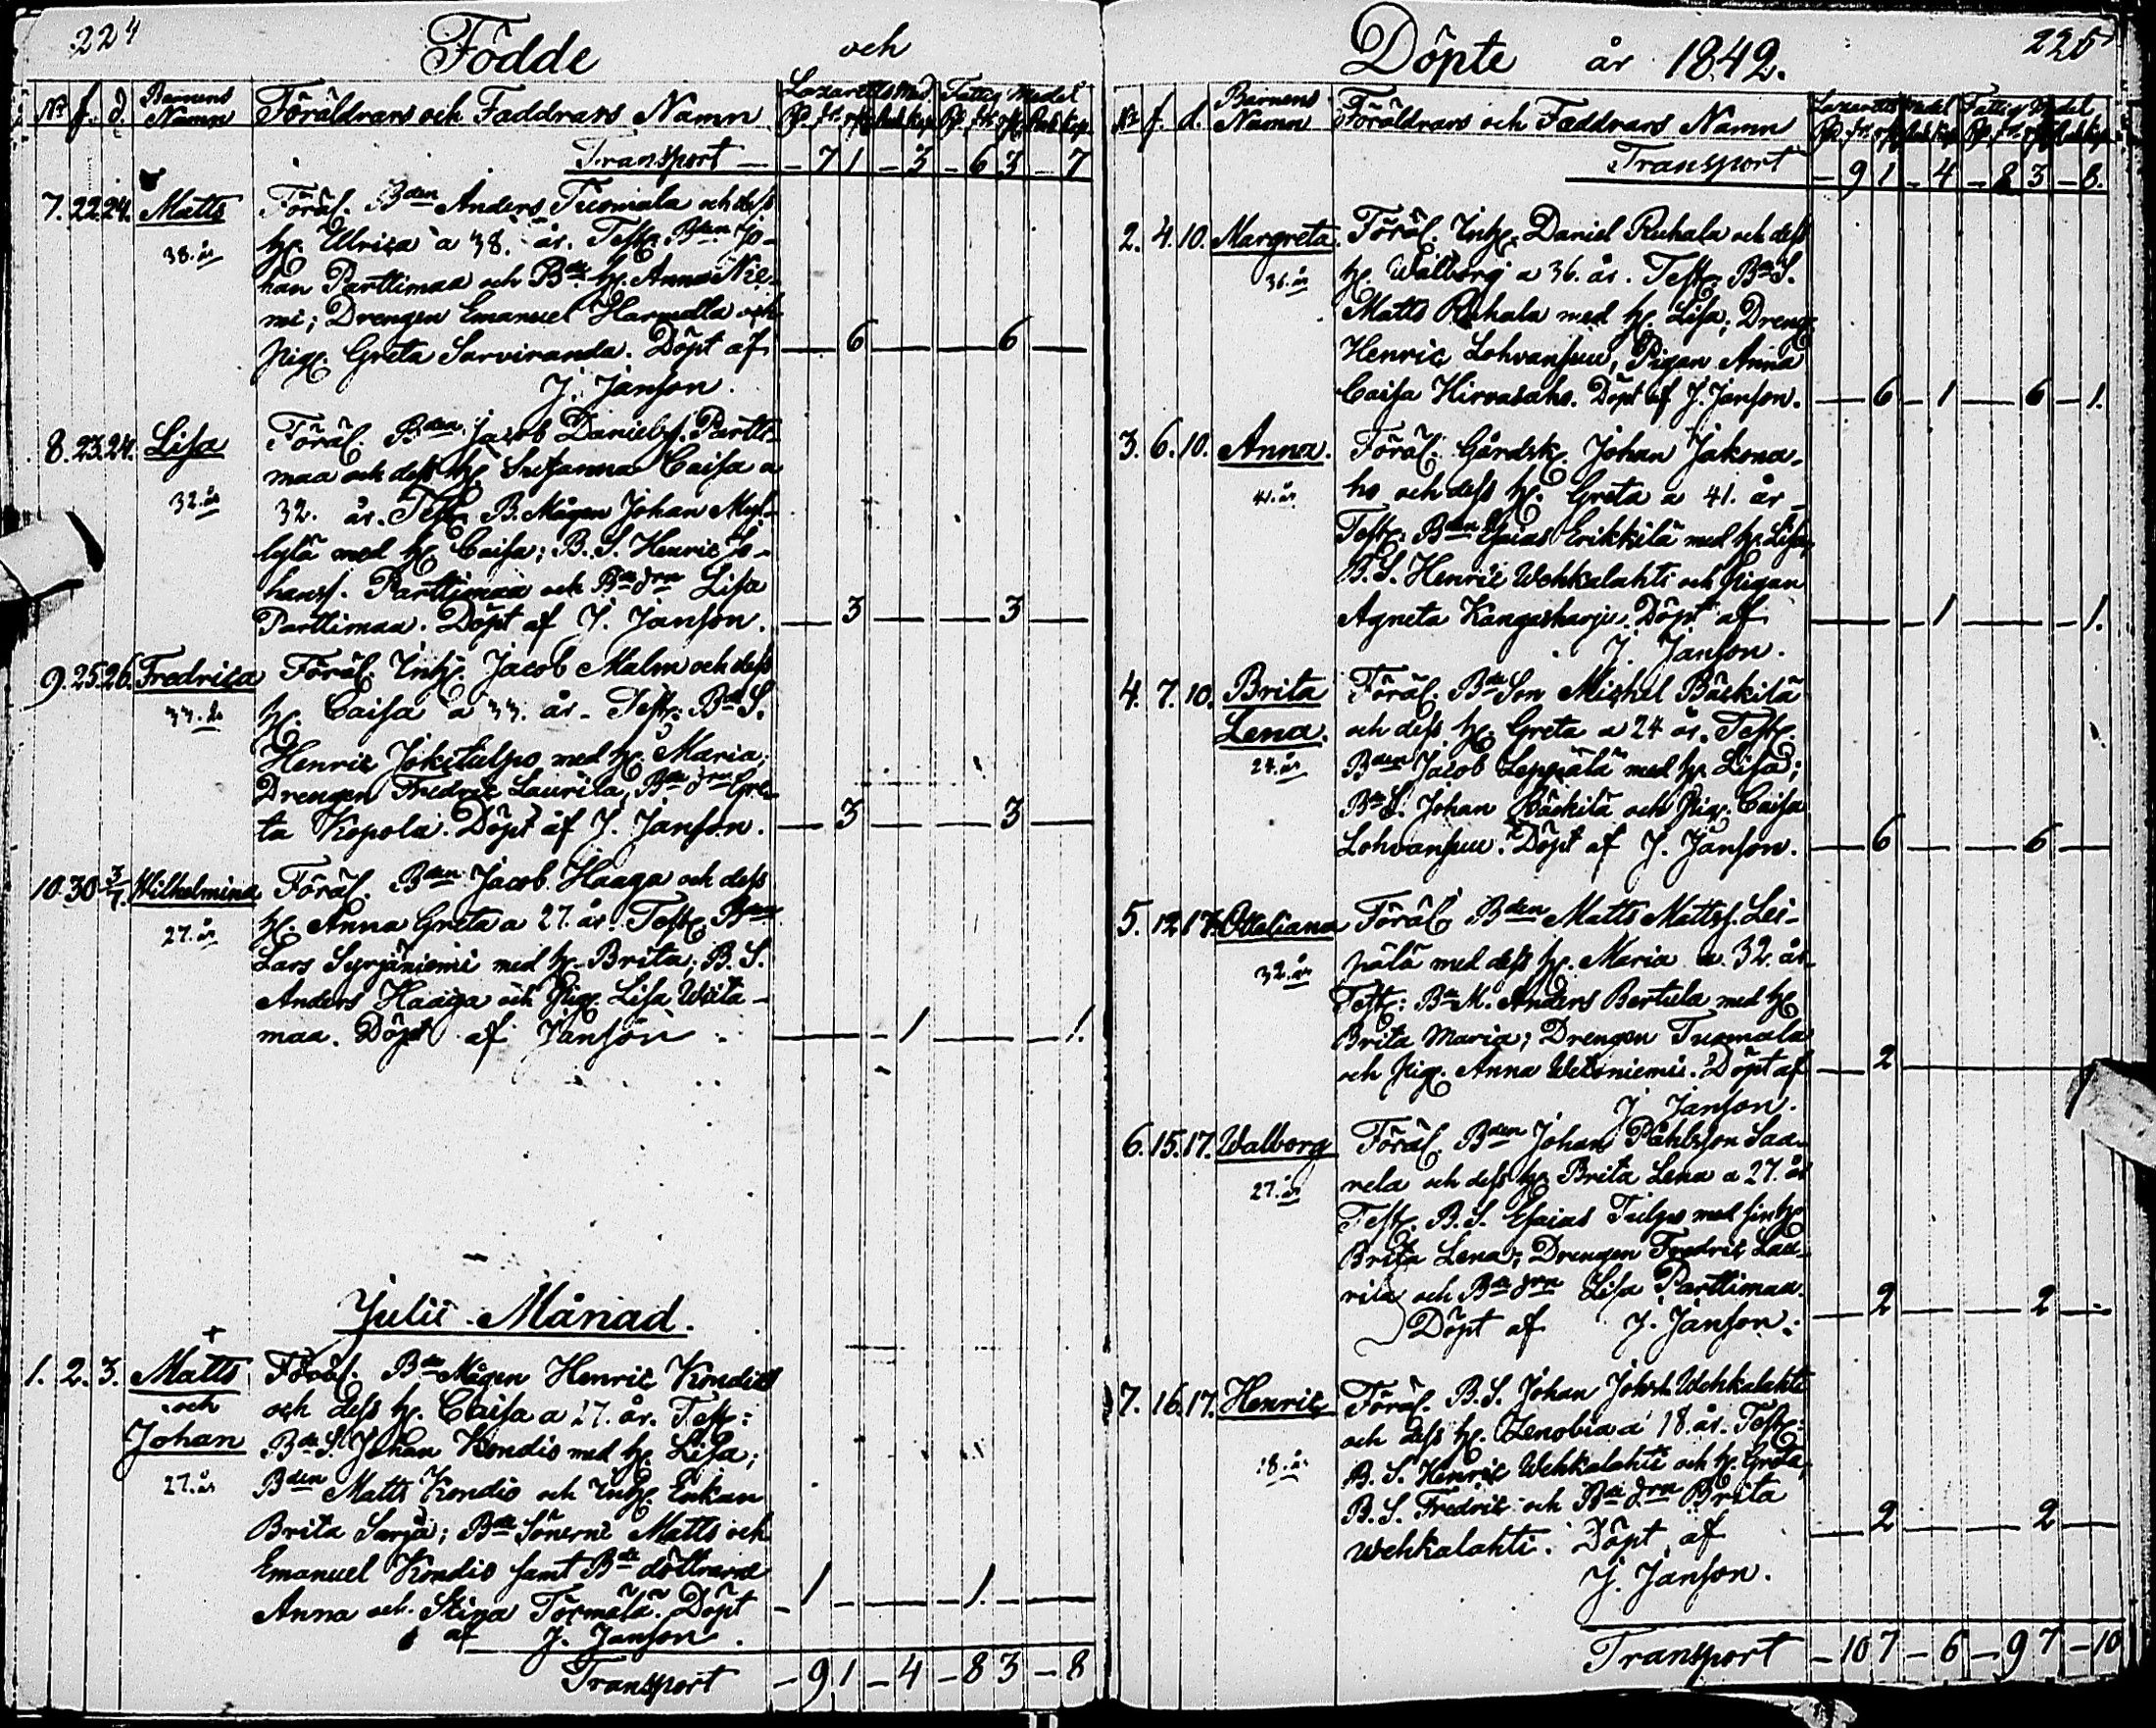 224
Födde och
Nr f. d. Barnens Namn Föräldrars och Faddrars Namn Lazaretts Med. Fattig Medel
Transport — - 7 1 - 3 - 6 3 - 7
7. 22. 24. Matts Föräl. Bden Anders Tuomala och dess
38. år hp. Ulrica a 38. år. Test. Bden Jo-
han Parttimaa och Bde hp. Anna Nie-
mi; Drengen Emanuel Harmalla och
pig. Greta Sarviranda. Döpt af — 6 — — 6 —
J. Janson.
8. 23. 24. Lisa Föräl. Bden Jacob Danielss. Partti-
maa och dess hp. Susanna Caisa a
32. år 32. år. Test. B. Mågen Johan Myl-
lylä med hp. Caisa; B. S. Henric Jo-
hanss. Parttimaa och Bde drn Lisa
Parttimaa. Döpt af J. Janson. — 3 — — 3 —
9. 25. 26. Fredrica Föräl. Inh. Jacob Malm och dess
33. år hp. Caisa a 33. år - Test. Bde S.
Henric Jokitulpo med hp. Maria;
Drengen Fredric Laurila, Bde drn Gre-
ta Kopola. Döpt af J. Janson. — 3 — — 3 —
10. 30 3/7. Wilhelmina Föräl. Bden Jacob Haaga och dess
27. år hp. Anna Greta a 27. år. Test. Bden
Lars Syrjäniemi med hp. Brita; B. S.
Anders Haaga och Pig. Lisa Wiita-
maa. Döpt af Janson — - 1 — - 1.
Julii Månad.
+
1. 2. 3. Matts Föräl. Bde Mågen Henric Kondio
och och dess hp. Caisa a 27. år. Test:
Johan Bde S. Johan Kondio med hp. Lisa;
27. år Bden Matts Kondio och Inh. Enkan
Brita Sarja; Bde Sönerne Matts och
Emanuel Kondio samt Bde döttrarne
Anna och Stina Törmälä. Döpt - 1 - - - 1. -
af J. Janson.
Transport - 9 1 - 4 - 8 3 - 8
Döpte år 1842. 225
Nr f. d. Barnens Namn Föräldrars och Faddrars Namn Lazaretts medel Fattig Medel
Transport - 9 1 - 4 - 8 3 - 8.
2. 4. 10. Margreta. Föräl. Inh. Daniel Ruhala och dess
36. år hp. Walborg a 36. år. Test. Bde S.
Matts Ruhala med hp. Lisa; Dreng.
Henric Lohvansuu, Pigan Anna
Caisa Hirvasaho. Döpt af J. Janson. — 6 - 1 — 6 - 1.
3. 6. 10. Anna. Föräl. Gårdsk. Johan Jakona-
41. år ho och dess hp. Greta a 41. år -
Test. Bden Esaias Erikkilä med hp. Lisa,
B. S. Henric Wehkalahti och Pigan
Agneta Kangasharju. Döpt af — 1 — 1.
J. Janson.
4. 7. 10. Brita Föräl. Bde Son Michel Bäckilä
Lena. och dess hp. Greta a 24 år. Test.
24. år Bden Jacob Leppälä med hp. Lisa;
Bde S. Johan Bäckilä och Pig. Caisa
Lohvansuu. Döpt af J. Janson. — 6 — — 6 —
5. 12. 17. Ottoliana Föräl. Bden Matts Mattss. Lei-
32. år pälä med dess hp. Maria a 32. år
Test: Bde M. Anders Bertula med hp
Brita Maria; Drengen Tuomala
och Pig. Anna Wetoniemi. Döpt af — 2 —
J Janson.
6. 15. 17. Walborg Föräl. Bden Johan Påhlsson Saa-
27. år rela och dess hp. Brita Lena a 27. år
Test. B. S. Esaias Tulpo med sin hp
Brita Lena; Drengen Fredric Lau-
rila och Bde drn Lisa Parttimaa. — 2 — — 2 —
Döpt af J. Janson.
7. 16. 17. Henric Föräl. B. S. Johan Johss. Wehkalahti
och dess hp. Zenobia a 18. år. Test:
18. år B. S. Henric Wehkalahti och hp. Greta;
B. S. Fredric och Bde drn Brita
Wehkalahti. Döpt af — 2 — — 2 —
J. Janson.
Transport - 10 7 - 6 - 9 7 - 10